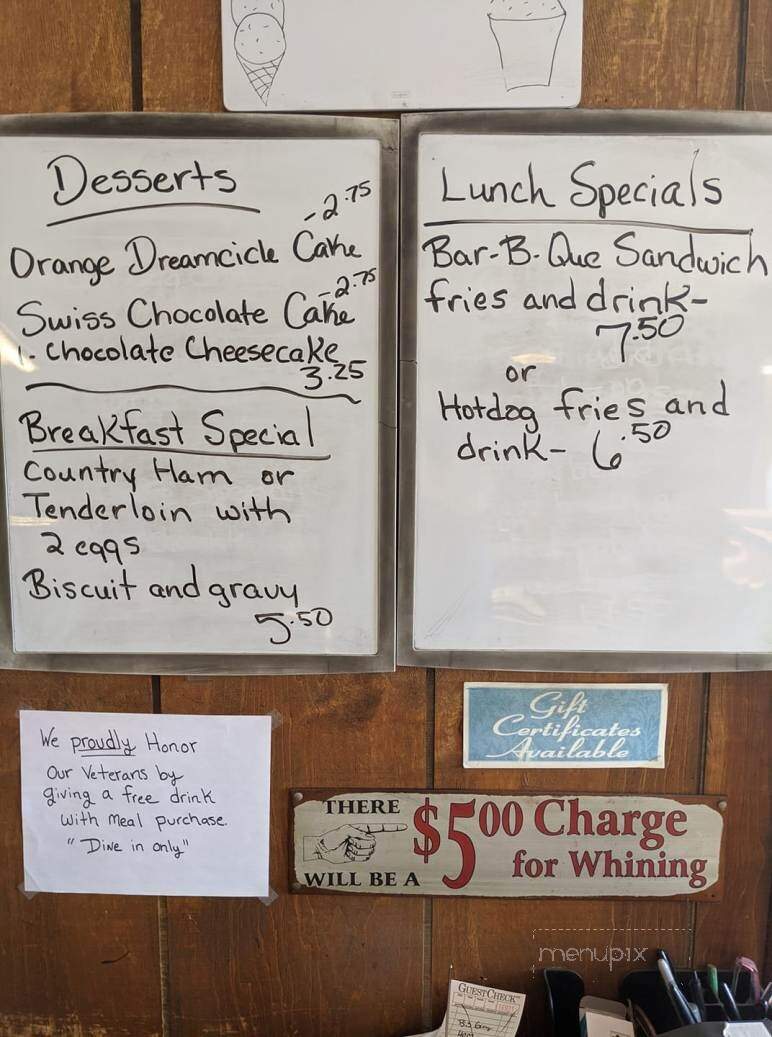 Desserts
-2.75
Orange Dreamcicle Cake
-2.75
Swiss Chocolate Cake
1- Chocolate Cheesecake
3.25
Breakfast Special
Country Ham or
Tenderloin with
2 eggs
Biscuit and gravy
5.50
Lunch Specials
Bar-B-Que Sandwich
fries and drink-
7.50
or
Hotdog fries and
drink- 6.50
We proudly Honor
Our Veterans by
giving a free drink
with meal purchase.
"Dine in only"
Gift
Certificates
Available
THERE
WILL BE A
$5.00 Charge
for Whining
menupix
GUEST CHECK